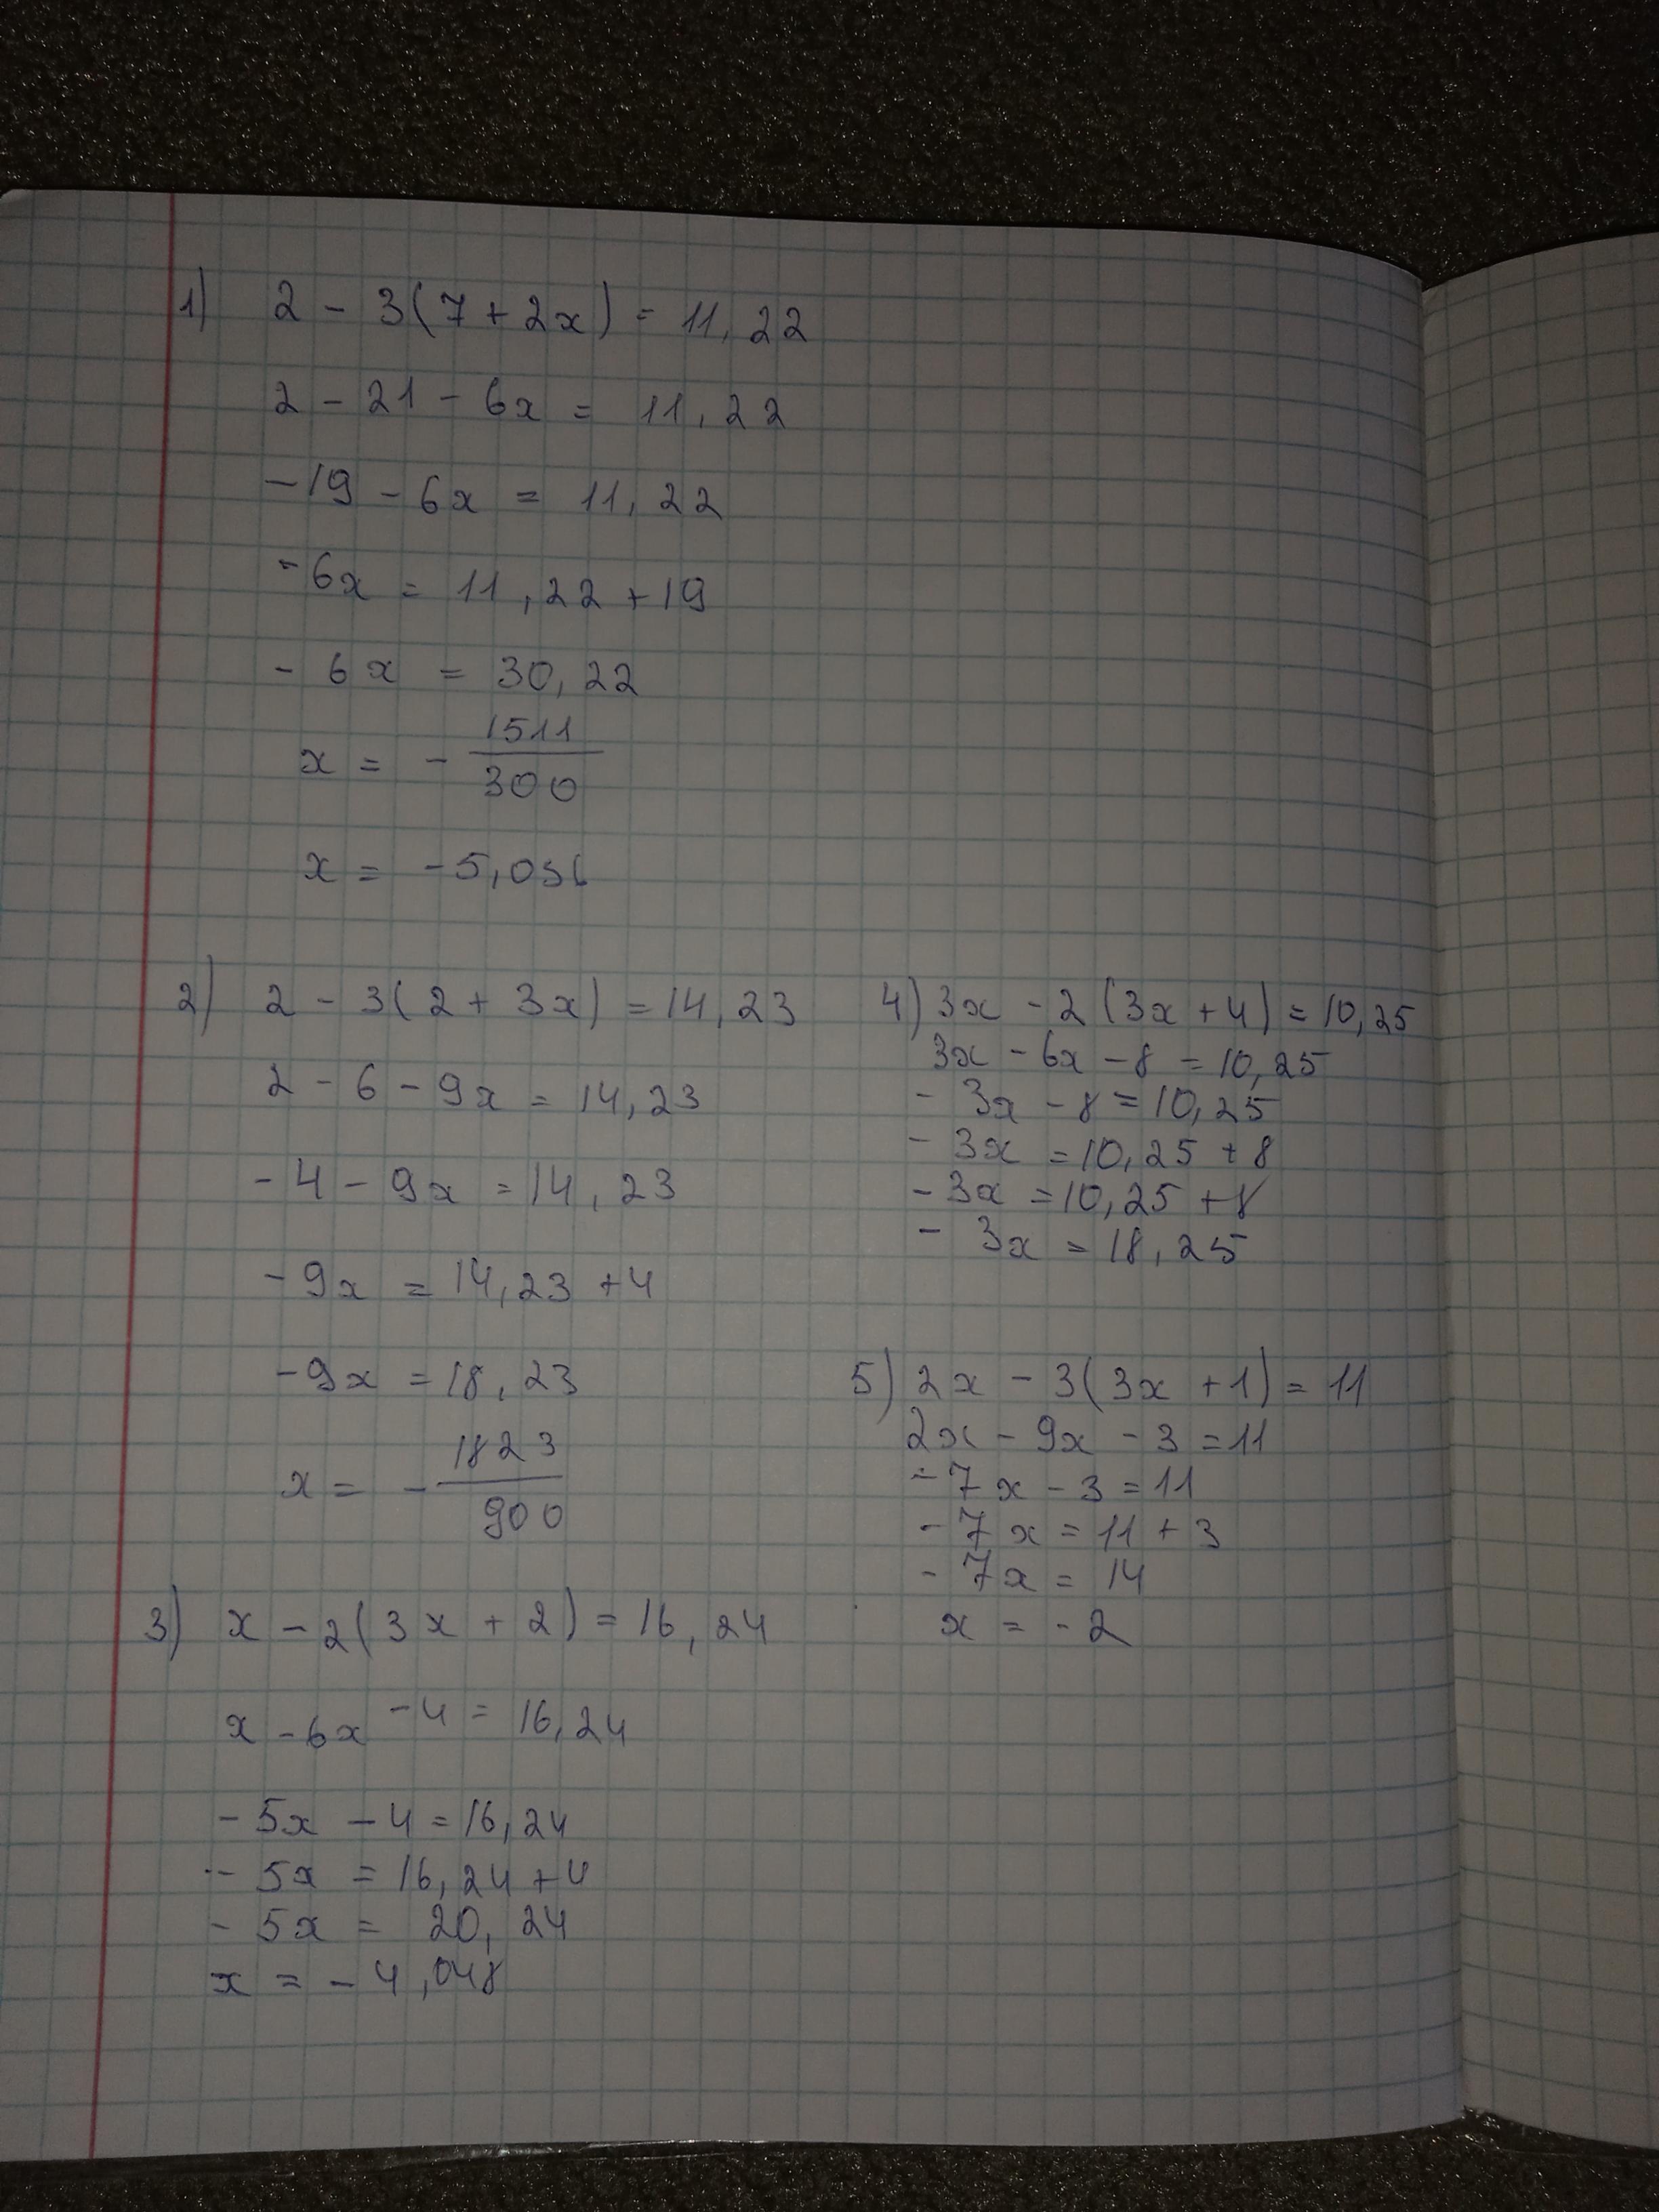 1) 2 - 3(7 + 2x) = 11,22
2 - 21 - 6x = 11,22
-19 - 6x = 11,22
-6x = 11,22 + 19
-6x = 30,22
x = - 1511/300
x = -5,036
2) 2 - 3(2 + 3x) = 14,23
2 - 6 - 9x = 14,23
-4 - 9x = 14,23
-9x = 14,23 + 4
-9x = 18,23
x = - 1823/900
3) x - 2(3x + 2) = 16,24
x - 6x - 4 = 16,24
-5x - 4 = 16,24
-5x = 16,24 + 4
-5x = 20,24
x = -4,048
4) 3x - 2(3x + 4) = 10,25
3x - 6x - 8 = 10,25
-3x - 8 = 10,25
-3x = 10,25 + 8
-3x = 10,25 + 8
-3x = 18,25
5) 2x - 3(3x + 1) = 11
2x - 9x - 3 = 11
-7x - 3 = 11
-7x = 11 + 3
-7x = 14
x = -2